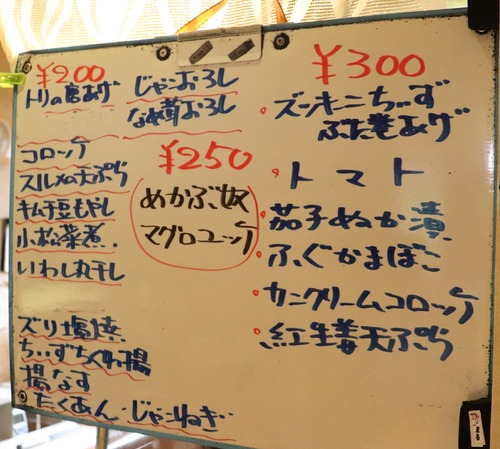 ¥200
トリの唐あげ
じゃこおろし
なめ茸おろし
コロッケ
スルメの天ぷら
キムチ豆もやし
小松菜煮
いわし丸干し
ズリ塩焼
ちぃずちくわ揚
揚なす
たくあん・じゃこねぎ
¥250
めかぶ奴
マグロユッケ
¥300
ズッキーニちぃず
ぶた巻あげ
トマト
茄子ぬか漬
ふぐかまぼこ
カニクリームコロッケ
紅生姜天ぷら